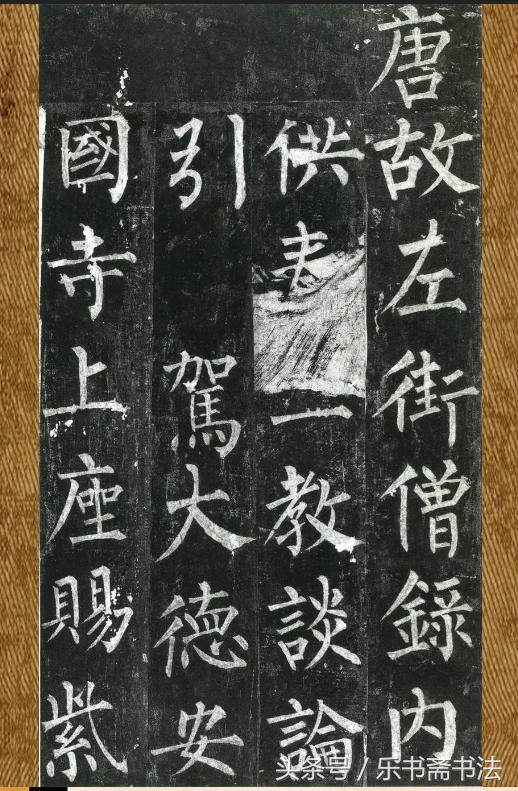 唐故左街僧錄内
供教談論
引駕大德安
國寺上座賜紫
头条号 / 乐书斋书法